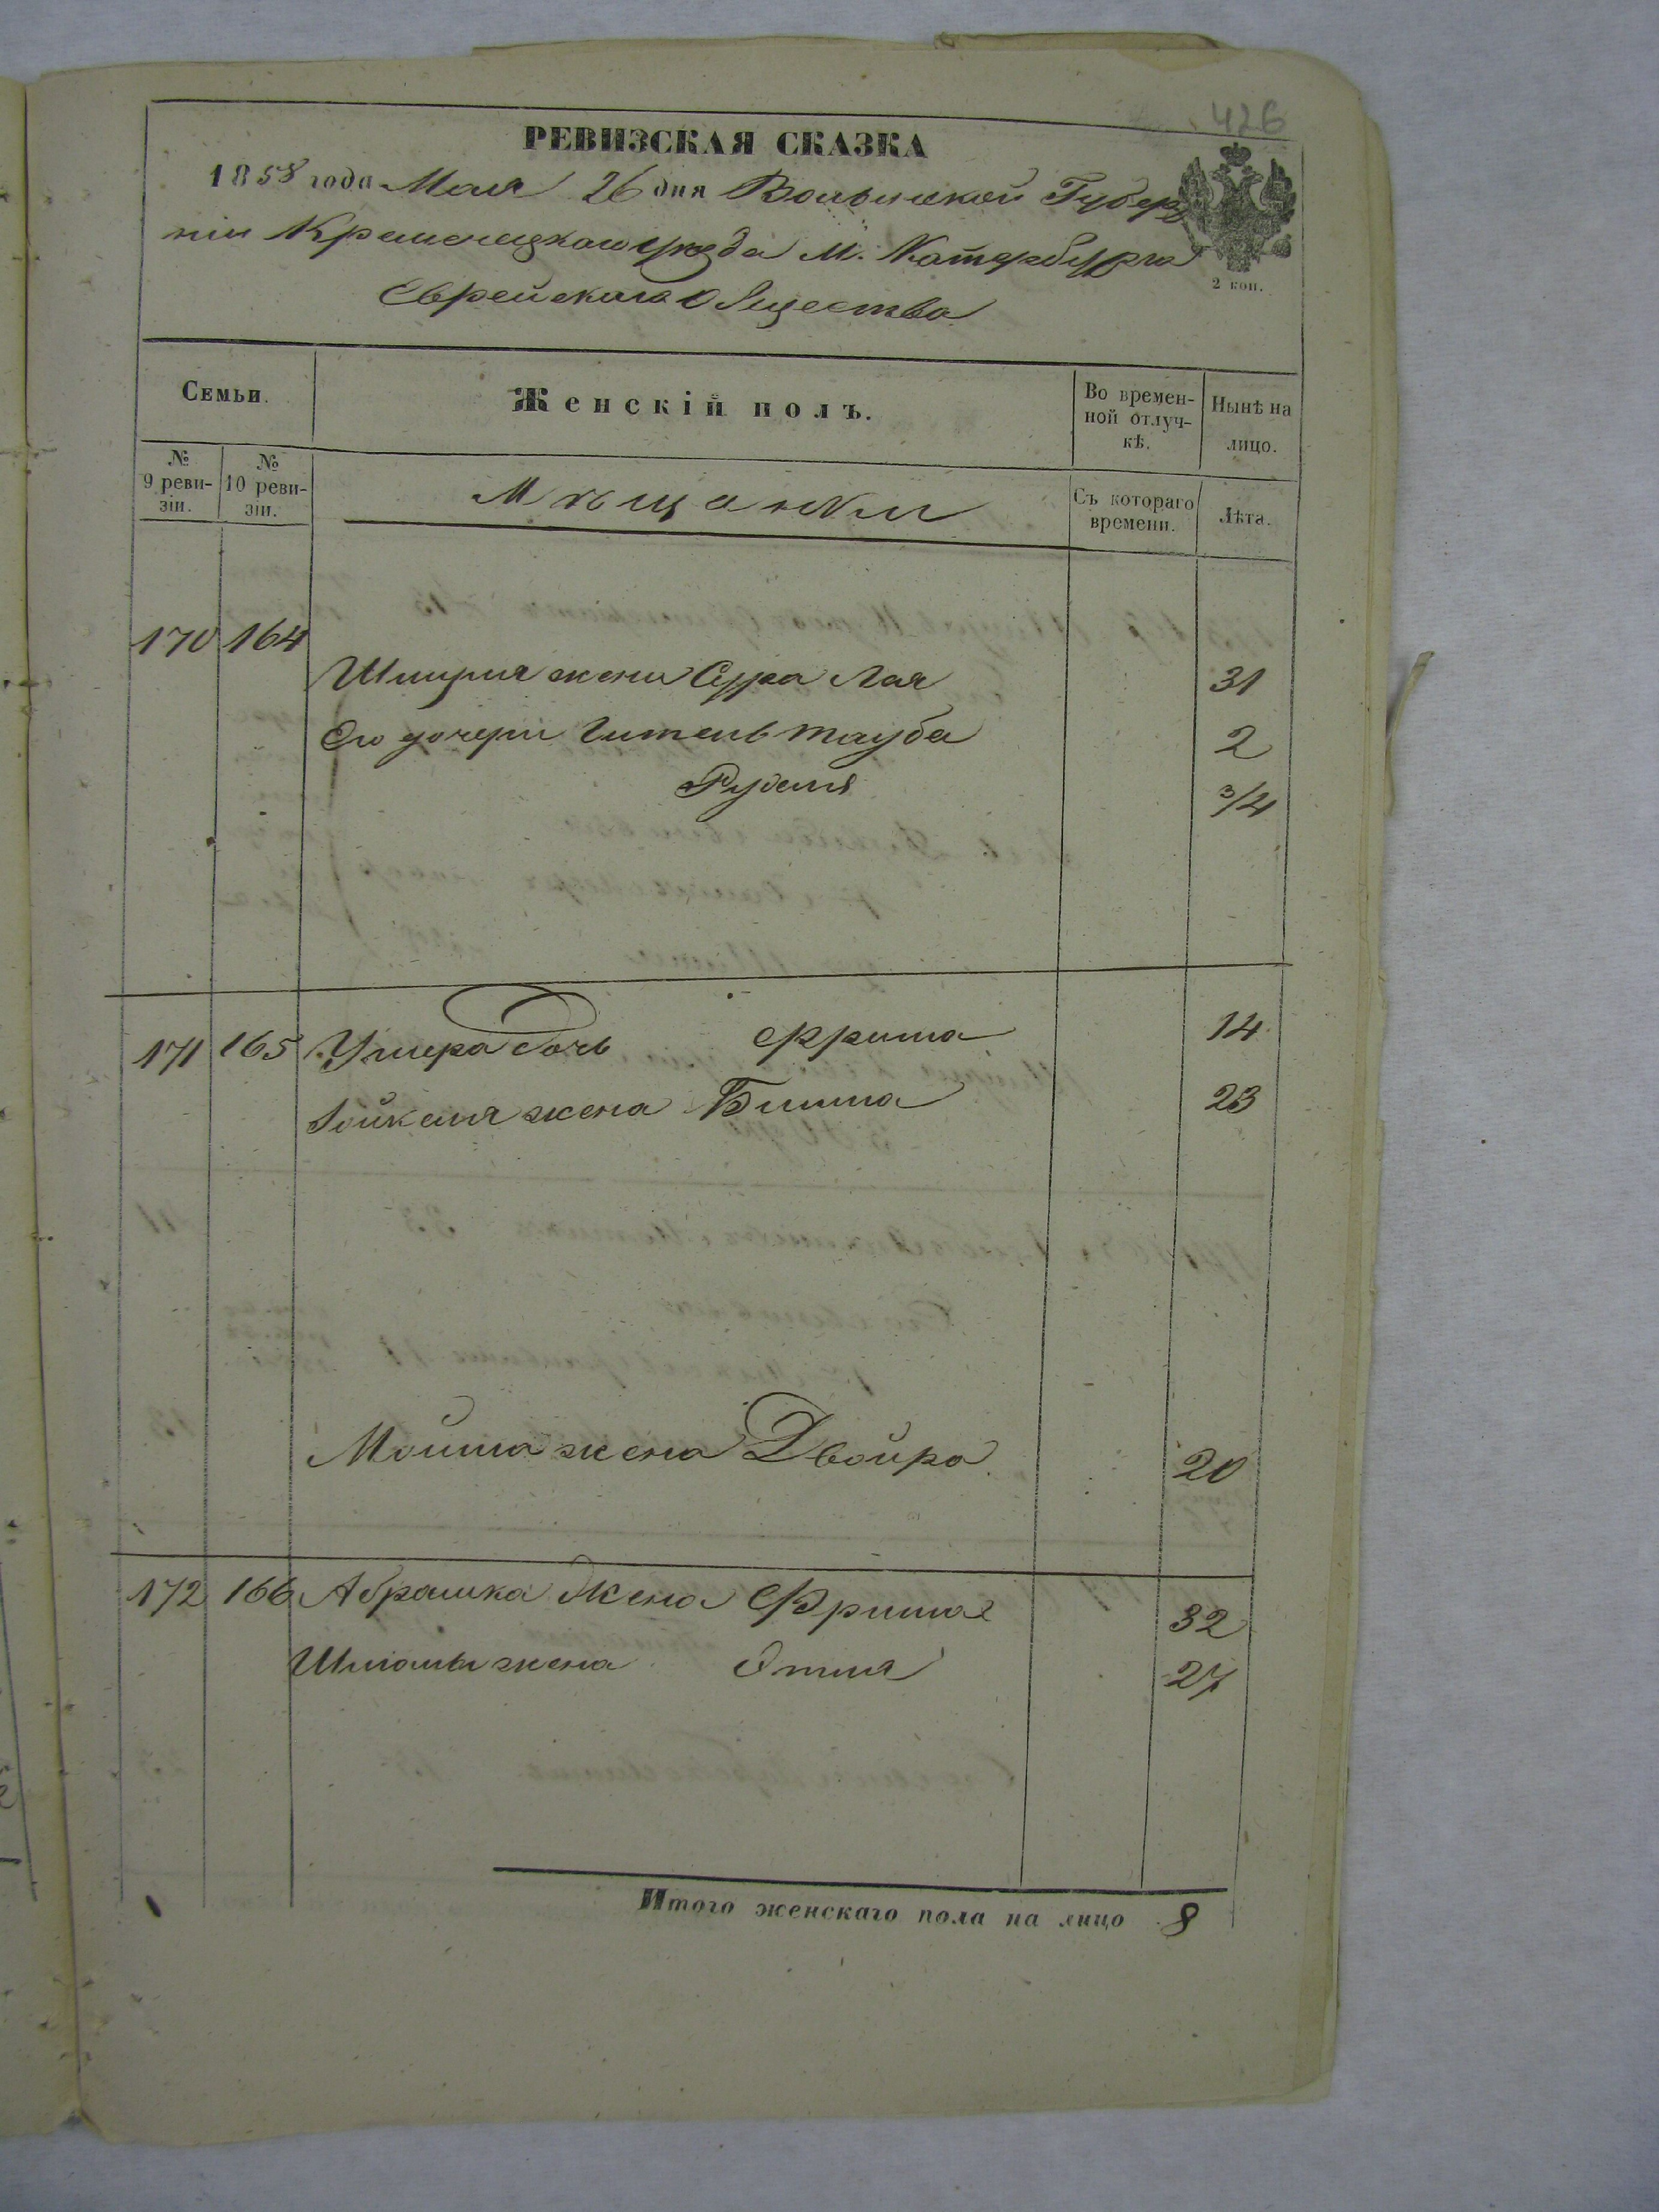 426
РЕВИЗСКАЯ СКАЗКА
1858 года Мая 26 дня Волынской Губер
ніи Кременецкаго уезда М. Катербурга
Еврейскаго Общества
2 коп.
Семьи.
Женскій полъ.
Во времен-
ной отлуч-
кѣ.
Нынѣ на
лицо.
№
9 реви-
зіи.
№
10 реви-
зіи.
Мѣщанки
Съ котораго
времени.
Лѣта.
170 164
Шмуля жена Сура Лая 31
Его дочери Гитель Тауба 2
Рухля 3/4
171 165 Умера дочь Фрима 14
жена 23
Мошка жена Двойра 20
172 166 Абрамка Жена Фрима 32
жена 27
Итого женскаго пола на лицо 8